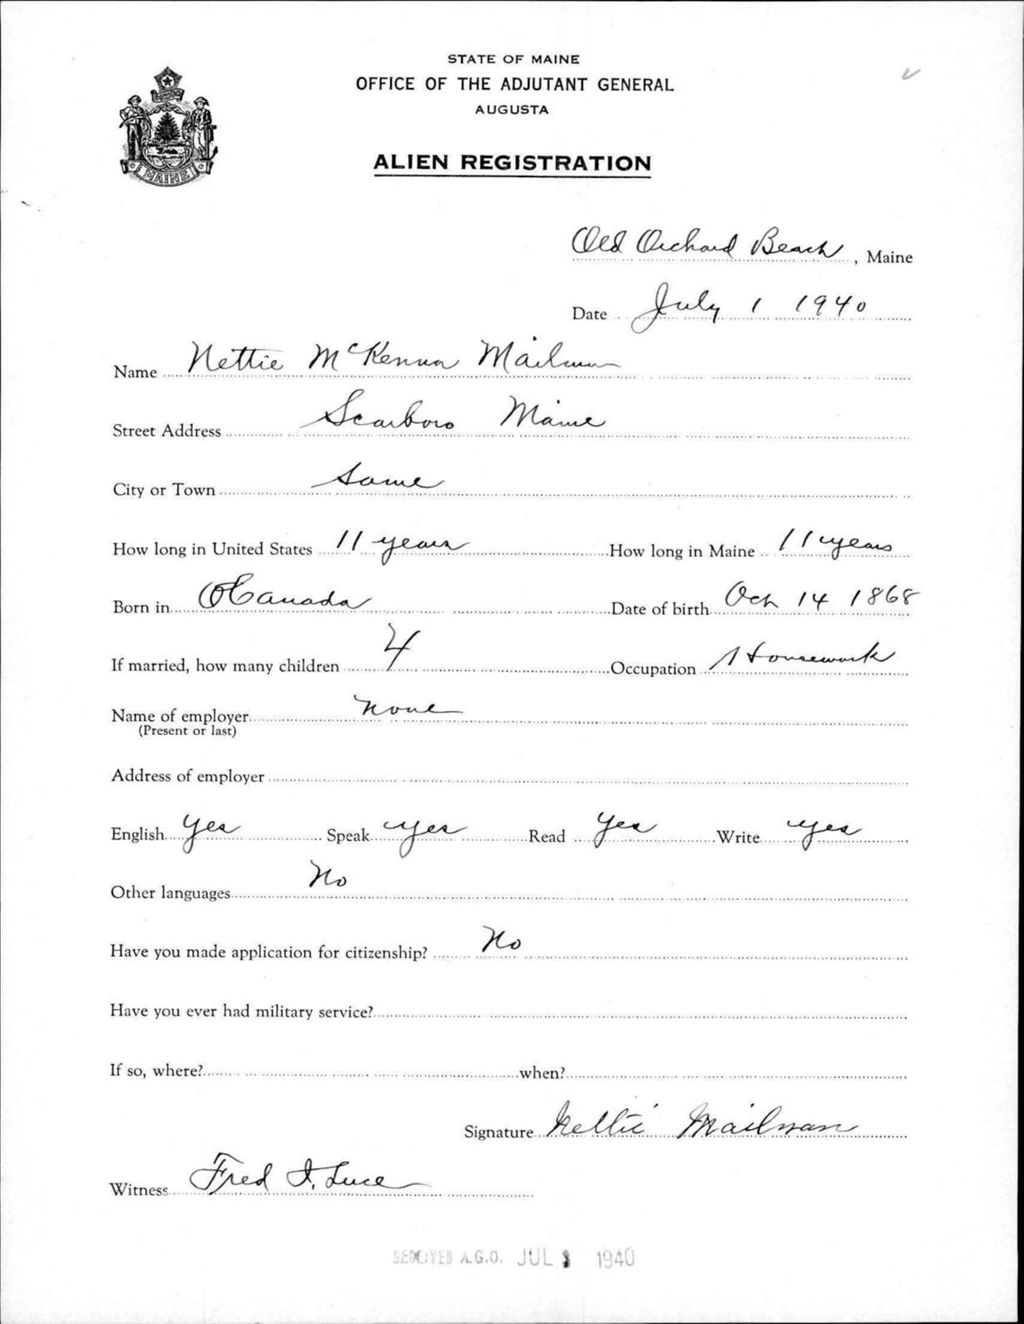 STATE OF MAINE
OFFICE OF THE ADJUTANT GENERAL
AUGUSTA
ALIEN REGISTRATION
MAINE
Old Orchard Beach, Maine
Date July 1 1940
Name Nettie McKenna Mailman
Street Address Scarboro Maine
City or Town Same
How long in United States 11 years How long in Maine 11 years
Born in Canada Date of birth Oct 14 1868
If married, how many children 4 Occupation Housework
Name of employer none
(Present or last)
Address of employer
English Yes Speak yes Read Yes Write yes
Other languages No
Have you made application for citizenship? No
Have you ever had military service?
If so, where? when?
Signature Nettie Mailman
Witness Fred I. Luce
RECEIVED A.G.O. JUL 1940